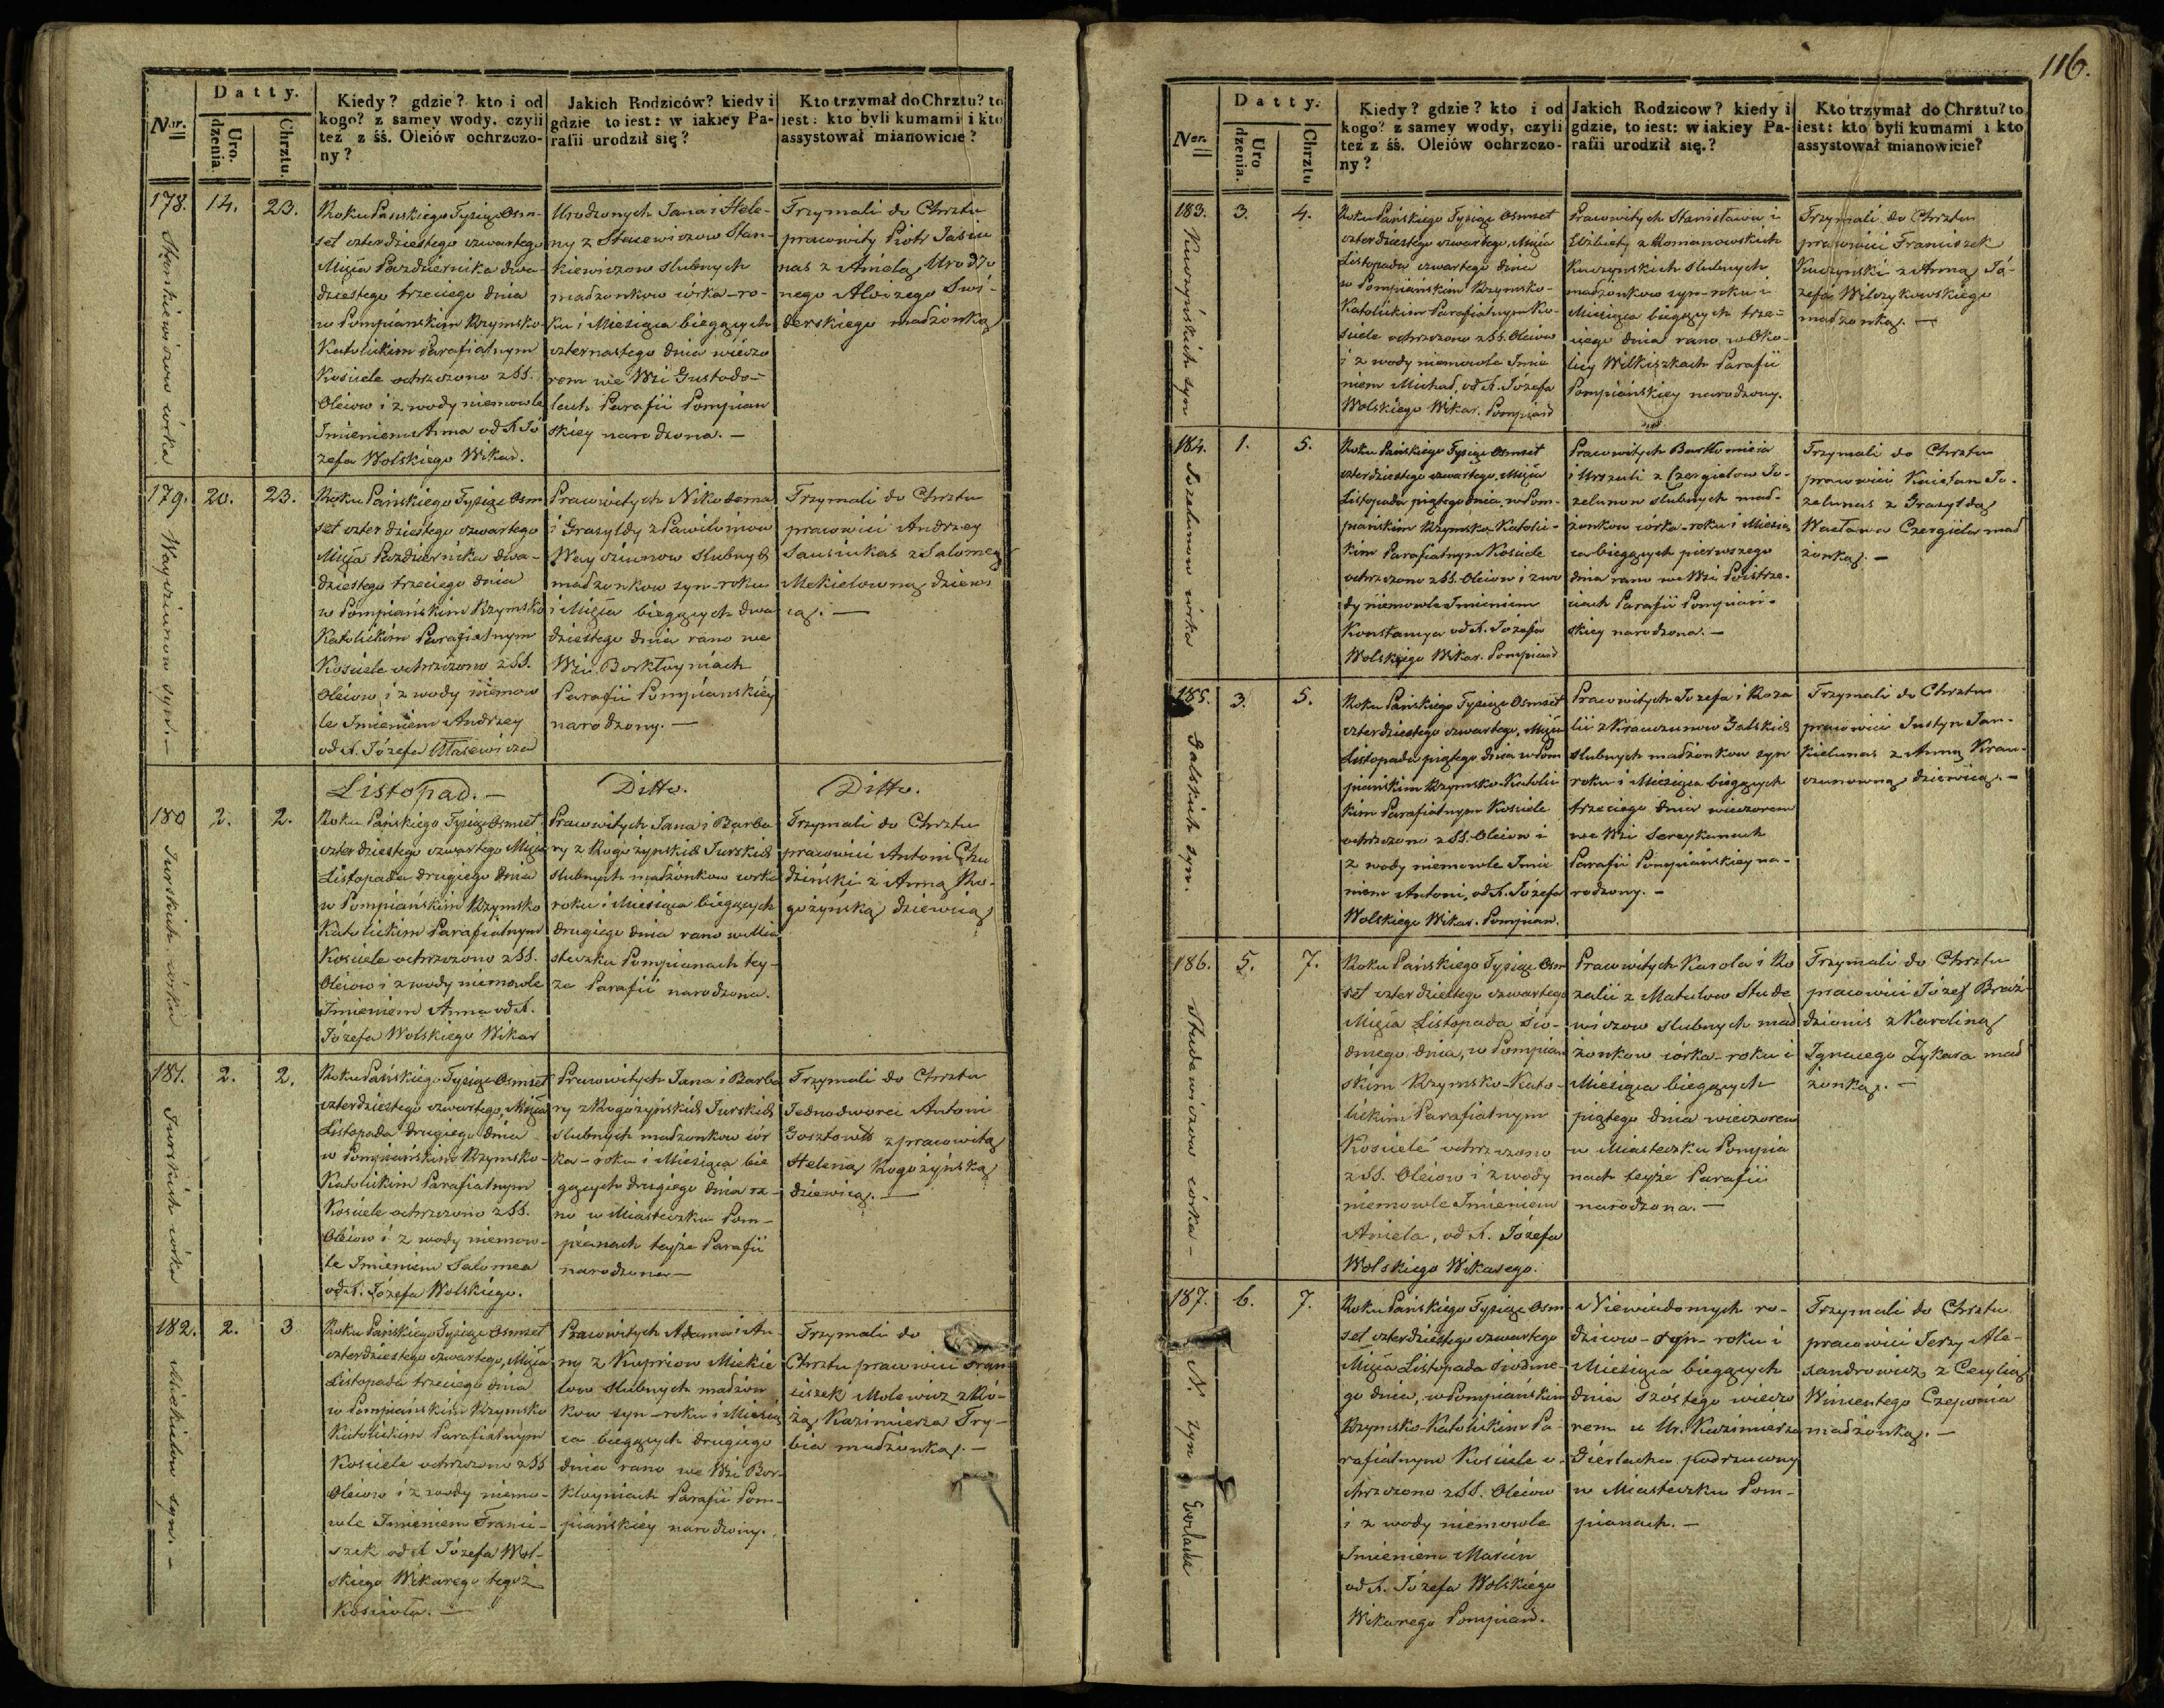 116.
Nr.
Datty.
Uro-
dzenia.
Chrztu.
Kiedy? gdzie? kto i od
kogo? z samey wody, czyli
też z śś. Oleiów ochrzczo-
ny?
Jakich Rodziców? kiedy i
gdzie to iest: w iakiey Pa-
rafii urodził się?
Kto trzymał do Chrztu? to
iest: kto byli kumami i kto
assystował mianowicie?
178.
14.
23.
Stankiewiczow córka
Roku Pańskiego Tysiąc Osm-
set czterdziestego czwartego
Mięśia Pazdziernika dwa-
dziestego trzeciego dnia
w Pompianskim Rzymsko-
Katolickim Parafialnym
Kosciele ochrzczono z SS.
Oleiow i z wody niemowle
Imieniem Anna od X. Jó
zefa Wolskiego Wikar.
Urodzonych Jana i Hele-
ny z Stacewiczow Stan-
kiewiczow slubnych
madżonkow córka - ro-
ku i Miesiąca bieżących
czternastego dnia wieczo
rem we Wsi Gustodo-
lach Parafii Pompian
skiey narodzona. -
Trzymali do Chrztu
pracowity Piotr Jasiu
nas z Anielą Urodzo
nego Aloizego Swi-
derskiego madżonką
179.
20.
23.
Wayciunow syn. -
Roku Pańskiego Tysiąc Osm
set czterdziestego czwartego
Mięśia Pazdziernika dwa-
dziestego trzeciego dnia
w Pompiańskim Rzymsko
Katolickim Parafialnym
Kosciele ochrzczono z SS.
Oleiow i z wody niemow
le Imieniem Andrzey
od X. Józefa
Pracowitych Nikodema
i Grasyldy z Pawilonow
Wayciunow slubnych
madżonkow syn - roku
i Mięśia bieżących dwa
dziestego dnia rano we
Wsi Borkłoyniach
Parafii Pompianskiey
narodzony. -
Trzymali do Chrztu
pracowici Andrzey
Sausiukas z Salomeą
Mekielowną dziewi
cą. -
Listopad. -
Ditto.
Ditto.
180
2.
2.
Jurskich córka
Roku Pańskiego Tysiąc Osmset
czterdziestego czwartego Mięśia
Listopada drugiego dnia
w Pompiańskim Rzymsko
Katolickim Parafialnym
Kosciele ochrzczono z SS.
Oleiow i z wody niemowle
Imieniem Anna od X.
Józefa Wolskiego Wikar
Pracowitych Jana i Barba
ry z Rogożynskich Jurskich
slubnych madżonkow corka
roku i Miesiąca bieżących
drugiego dnia rano w Mia
steczku Pompianach tey-
że Parafii narodzona.
Trzymali do Chrztu
pracowici Antoni Chu
dzinski z Anną Ro-
gożynską dziewicą
181.
2.
2.
Jurskich córka
Roku Pańskiego Tysiąc Osmset
czterdziestego czwartego, Mięśia
Listopada drugiego dnia
w Pompiańskim Rzymsko-
Katolickim Parafialnym
Kosciele ochrzczono z SS.
Oleiow i z wody niemow-
le Imieniem Salomea
od X. Józefa Wolskiego.
Pracowitych Jana i Barba
ry z Rogożyńskich Jurskich
slubnych madzonkow cór
ka - roku i Miesiąca bie
żących drugiego dnia ra-
no w Miasteczku Pom-
pianach teyże Parafii
narodzona -
Trzymali do Chrztu
Jednodworci Antoni
Gosztowtt z pracowitą
Heleną Rogożyńską
dziewicą. -
182.
2.
3
Mickielow syn. -
Roku Pańskiego Tysiąc Osmset
czterdziestego czwartego, Mięśia
Listopada trzeciego dnia
w Pompianskim Rzymsko
Katolickim Parafialnym
Kosciele ochrzczono z SS
Oleiow i z wody niemo-
wle Imieniem Franci-
szek od X Józefa Wol-
skiego Wikarego tegoż
Kosciola. -
Pracowitych Adama i An-
ny z Kupriow Mickie
low slubnych madżon
kow syn - roku i Miesią
ca bieżących drugiego
dnia rano we Wsi Bor-
kłoyniach Parafii Pom-
piańskiey narodzony.
Trzymali do
Chrztu pracowici Fran
ciszek Molewicz z Ró-
żą Kazimierza Try-
bia madżonką. -
Nr.
Datty.
Uro
dzenia.
Chrztu
Kiedy? gdzie? kto i od
kogo? z samey wody, czyli
też z śś. Oleiów ochrzczo-
ny?
Jakich Rodzicow? kiedy i
gdzie, to iest: w iakiey Pa-
rafii urodził się.?
Kto trzymał do Chrztu? to
iest: kto byli kumami i kto
assystował mianowicie?
183.
3.
4.
Kuczyńskich syn
Roku Pańskiego Tysiąc Osmset
czterdziestego czwartego, Mięśia
Listopada czwartego dnia
w Pompiańskim Rzymsko-
Katolickim Parafialnym Ko-
sciele ochrzczono z SS. Oleiow
i z wody niemowle Imie
niem Michał, od X. Józefa
Wolskiego Wikar. Pompiań
Pracowitych Stanisława i
Elżbiety z Romanowskich
Kuczynskich slubnych
madżonkow syn - roku i
Miesiąca bieżących trze-
ciego dnia rano w Oko-
licy Wilkiszkach Parafii
Pompiańskiey narodzony.
Trzymali do Chrztu
pracowici Franciszek
Kuczyński z Anną Jó-
zefa Wilczykowskiego
madżonką. -
184.
1.
5.
Jozelunow córka
Roku Pańskiego Tysiąc Osmset
czterdziestego czwartego, Mięśia
Listopada piątego dnia, w Pom-
piańskim Rzymsko-Katolic-
kim Parafialnym Kosciele
ochrzczono z SS. Oleiow i z wo
dy niemowle Imieniem
Konstancya od X. Józefa
Wolskiego Wikar. Pompiań
Pracowitych Bartłomieia
i Urszuli z Czergielow Jo-
zelunow slubnych mad-
żonkow córka - roku i Miesią
ca bieżących pierwszego
dnia rano we Wsi Poistrze-
ciach Parafii Pompiań-
skiey narodzona. -
Trzymali do Chrztu
pracowici Kaietan Jo-
zelunas z Grasyldą
Wacława Czergiela mad
żonką. -
185.
3.
5.
Galskich syn.
Roku Pańskiego Tysiąc Osmset
czterdziestego czwartego, Mięśia
Listopada piątego dnia w Pom
piańskim Rzymsko-Katolic
kim Parafialnym Kosciele
ochrzczono z SS. Oleiow i
z wody niemowle Imie
niem Antoni, od X. Józefa
Wolskiego Wikar. Pompian.
Pracowitych Jozefa i Roza
lii z Krauczunow Galskich
slubnych madżonkow syn
roku i Miesiąca bieżących
trzeciego dnia wieczorem
we Wsi Sereykanach
Parafii Pompiańskiey na-
rodzony. -
Trzymali do Chrztu
pracowici Justyn Jan-
kielunas z Anną Krau-
czunowną dziewicą. -
186.
5.
7.
Studewiczow córka -
Roku Pańskiego Tysiąc Osm
set czterdziestego czwartego
Mięśia Listopada sió-
dmego dnia, w Pompiań
skim Rzymsko-Kato-
lickim Parafialnym
Kosciele ochrzczono
z SS. Oleiow i z wody
niemowle Imieniem
Aniela, od X. Józefa
Wolskiego Wikarego.
Pracowitych Karola i Ro
zalii z Matulow Stude
wiczow slubnych mad
żonkow córka - roku i
Miesiąca bieżących
piątego dnia wieczorem
w Miasteczku Pompia
nach teyże Parafii
narodzona. -
Trzymali do Chrztu
pracowici Józef Braź-
dzionis z Karoliną
Ignacego Zykasa mad
żonką. -
187.
6.
7.
N. syn
Roku Pańskiego Tysiąc Osm
set czterdziestego czwartego
Mięśia Listopada siódme-
go dnia, w Pompiańskim
Rzymsko-Katolickim Pa-
rafialnym Kosciele o-
chrzczono z SS. Oleiow
i z wody niemowle
Imieniem Marcin
od X. Józefa Wolskiego
Wikarego Pompiań.
Niewiadomych ro-
dzicow - syn - roku i
Miesiąca bieżących
dnia szóstego wieczo
rem u Ur. Kazimierza
Gierlacha podrzucony
w Miasteczku Pom-
pianach. -
Trzymali do Chrztu
pracowici Jerzy Ale-
xandrowicz z Cecylią
Wincentego Czeponia
madżonką. -